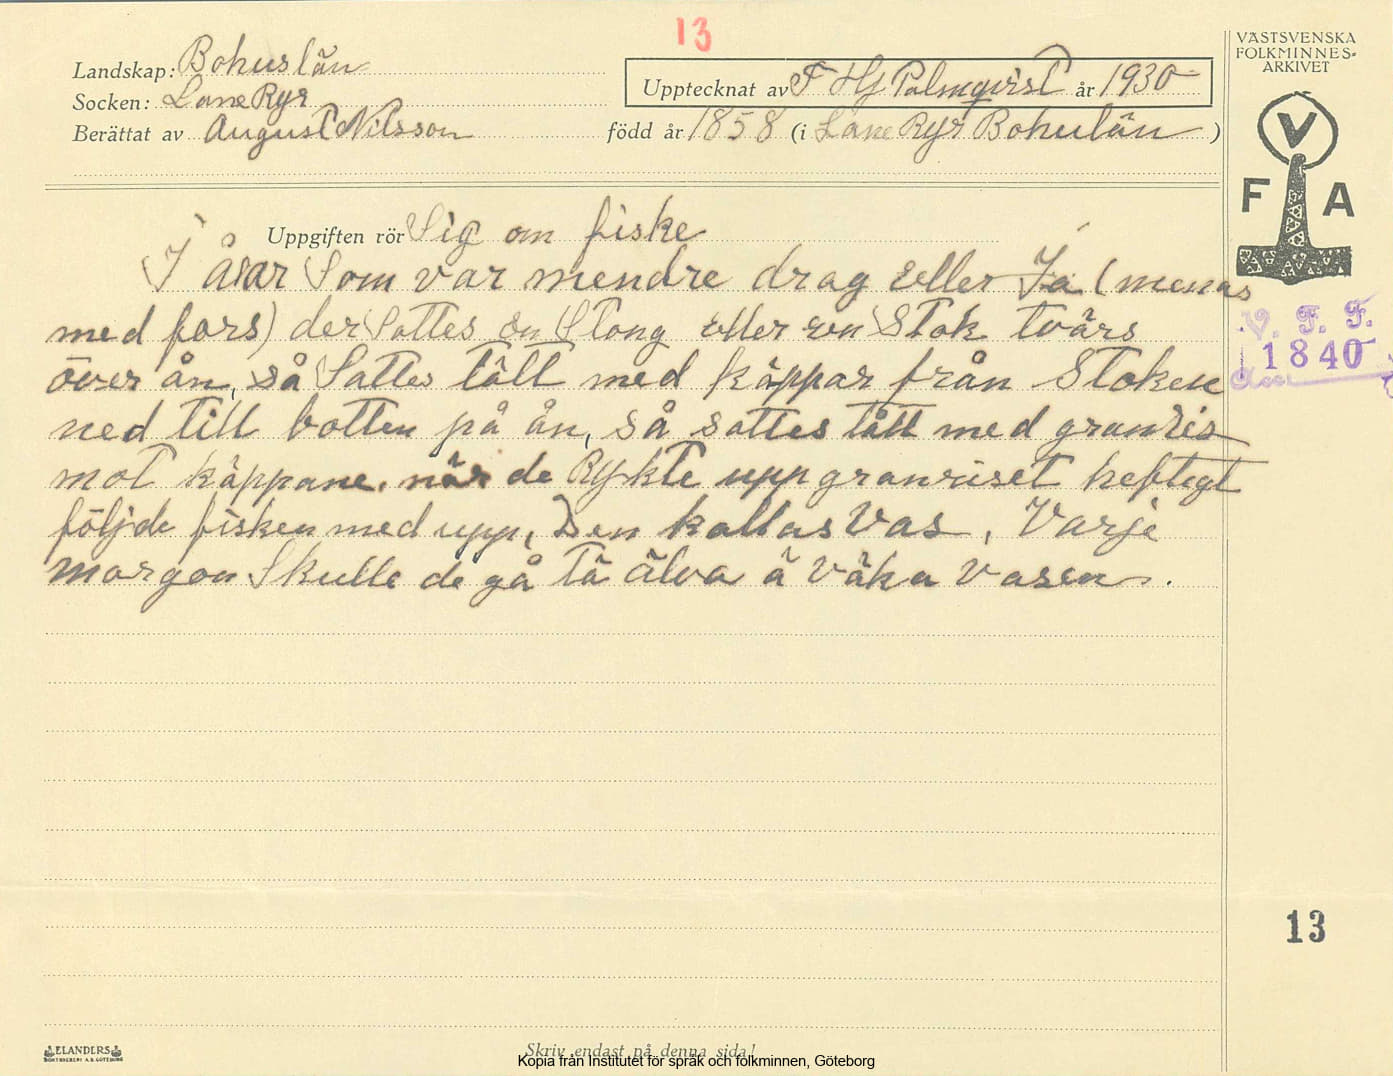 13
VÄSTSVENSKA
FOLKMINNES-
ARKIVET
Landskap: Bohuslän
Upptecknat av F Hj Palmqvist år 1930
Socken: Lane Ryr
Berättat av August Nilsson född år 1858 (i Lane Ryr Bohulän )
V
F A
Uppgiften rör Sig om fiske
I åar Som var mendre drag eller (menas
med fors) der Sattes en Stong eller en Stok tvärs
över ån, så Sattes tätt med käppar från Stoken
ned till botten på ån, så sattes tätt med granris
mot käppane. när de Rykte upp granriset heftegt
följde fisken med upp, Den kallas Vas, Varje
morgon Skulle de gå tä älva å väka vasen.
V. F. F.
1840
13
ELANDERS
BOKTRYCKERI A.B. GÖTEBORG
Skriv endast på denna sida!
Kopia från Institutet för språk och folkminnen, Göteborg